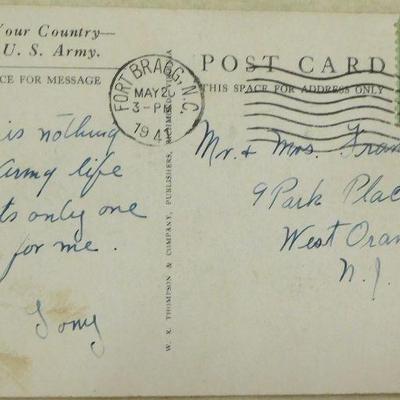 Your Country—
U. S. Army.
CE FOR MESSAGE
is nothing
Army life
ts only one
for me.
Tony
W. R. THOMPSON & COMPANY, PUBLISHERS, RICHMOND,
FORT BRAGG, N.C.
MAY 2
3-PM
194
POST CARD
THIS SPACE FOR ADDRESS ONLY
Mr. & Mrs. Fran
9 Park Plac
West Oran
N. J.